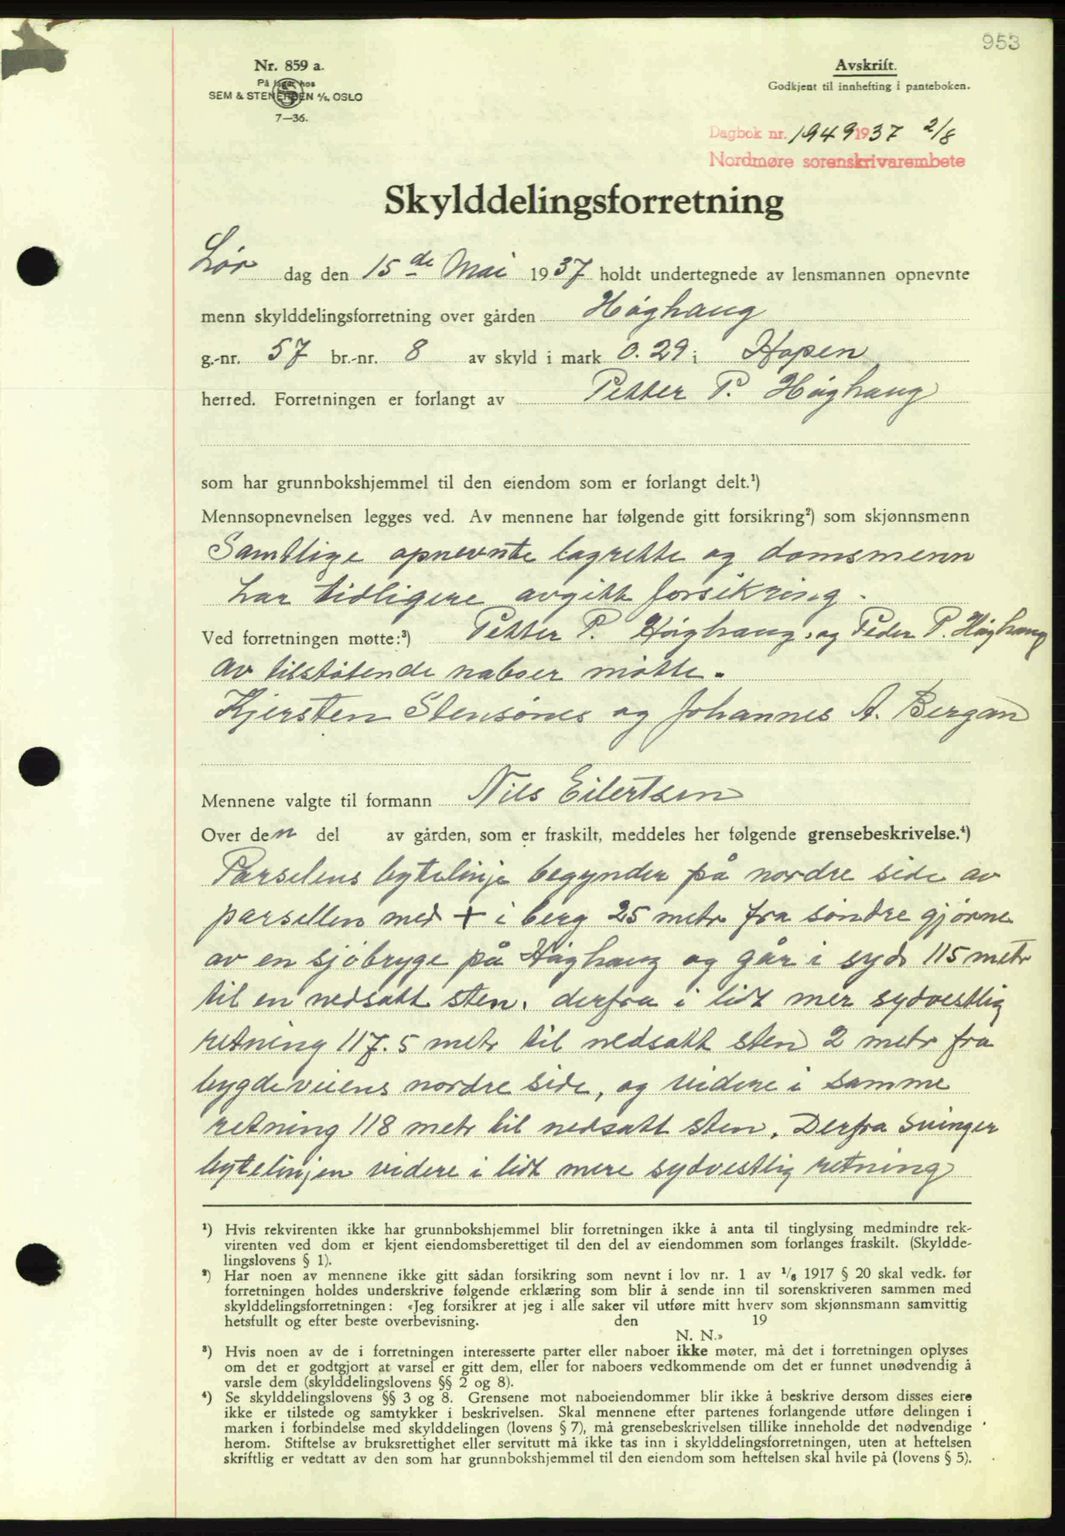 953
Nr. 859 a.
På lager hos
SEM & STENERSEN A/S, OSLO
7—36.
Avskrift.
Godkjent til innhefting i panteboken.
Dagbok nr. 1949 1937 2/8
Nordmøre sorenskrivarembete
Skylddelingsforretning
Lør dag den 15de Mai 1937 holdt undertegnede av lensmannen opnevnte
menn skylddelingsforretning over gården Höghaug
g.-nr. 57 br.-nr. 8 av skyld i mark 0.29 i Hopen
herred. Forretningen er forlangt av Petter P. Höghaug
som har grunnbokshjemmel til den eiendom som er forlangt delt.¹)
Mennsopnevnelsen legges ved. Av mennene har følgende gitt forsikring²) som skjønnsmenn
Samtlige opnevnte lagrette og domsmenn
har tidligere avgitt forsikring.
Ved forretningen møtte:³) Petter P. Höighaug, og Peder P. Höghaug
av tilstøtende naboer møtte.
Kjersten Stensönes og Johannes A. Bergan
Mennene valgte til formann Nils Eilertsen
Over den del av gården, som er fraskilt, meddeles her følgende grensebeskrivelse.⁴)
Parselens bytelinje begynder på nordre side av
parsellen med + i berg 25 metr fra søndre gjørne
av en sjöbryge på Höghaug og går i syd 115 metr
til en nedsatt sten. derfra i lidt mer sydvestlig
retning 117.5 metr til nedsatt sten 2 metr fra
bygdeveiens nordre side, og videre i samme
retning 118 metr til nedsatt sten. Derfra svinger
bytelinjen videre i lidt mere sydvestlig retning
¹) Hvis rekvirenten ikke har grunnbokshjemmel blir forretningen ikke å anta til tinglysing medmindre rek-
virenten ved dom er kjent eiendomsberettiget til den del av eiendommen som forlanges fraskilt. (Skyldde-
lingslovens § 1).
²) Har noen av mennene ikke gitt sådan forsikring som nevnt i lov nr. 1 av 1/6 1917 § 20 skal vedk. før
forretningen holdes underskrive følgende erklæring som blir å sende inn til sorenskriveren sammen med
skylddelingsforretningen: «Jeg forsikrer at jeg i alle saker vil utføre mitt hverv som skjønnsmann samvittig
hetsfullt og efter beste overbevisning. den 19
N. N.»
³) Hvis noen av de i forretningen interesserte parter eller naboer ikke møter, må det i forretningen oplyses
om det er godtgjort at varsel er gitt dem, eller for naboers vedkommende om det er funnet unødvendig å
varsle dem (skylddelingslovens §§ 2 og 8).
⁴) Se skylddelingslovens §§ 3 og 8. Grensene mot naboeiendommer blir ikke å beskrive dersom disses eiere
ikke er tilstede og samtykker i beskrivelsen. Skal mennene efter partenes forlangende utføre delingen i
marken i forbindelse med skylddelingen (lovens § 7), må grensebeskrivelsen tillike inneholde det nødvendige
herom. Stiftelse av bruksrettighet eller servitutt må ikke tas inn i skylddelingsforretningen, uten at heftelsen
skriftlig er vedtatt av den som har grunnbokshjemmel til den eiendom som heftelsen skal hvile på (lovens § 5).